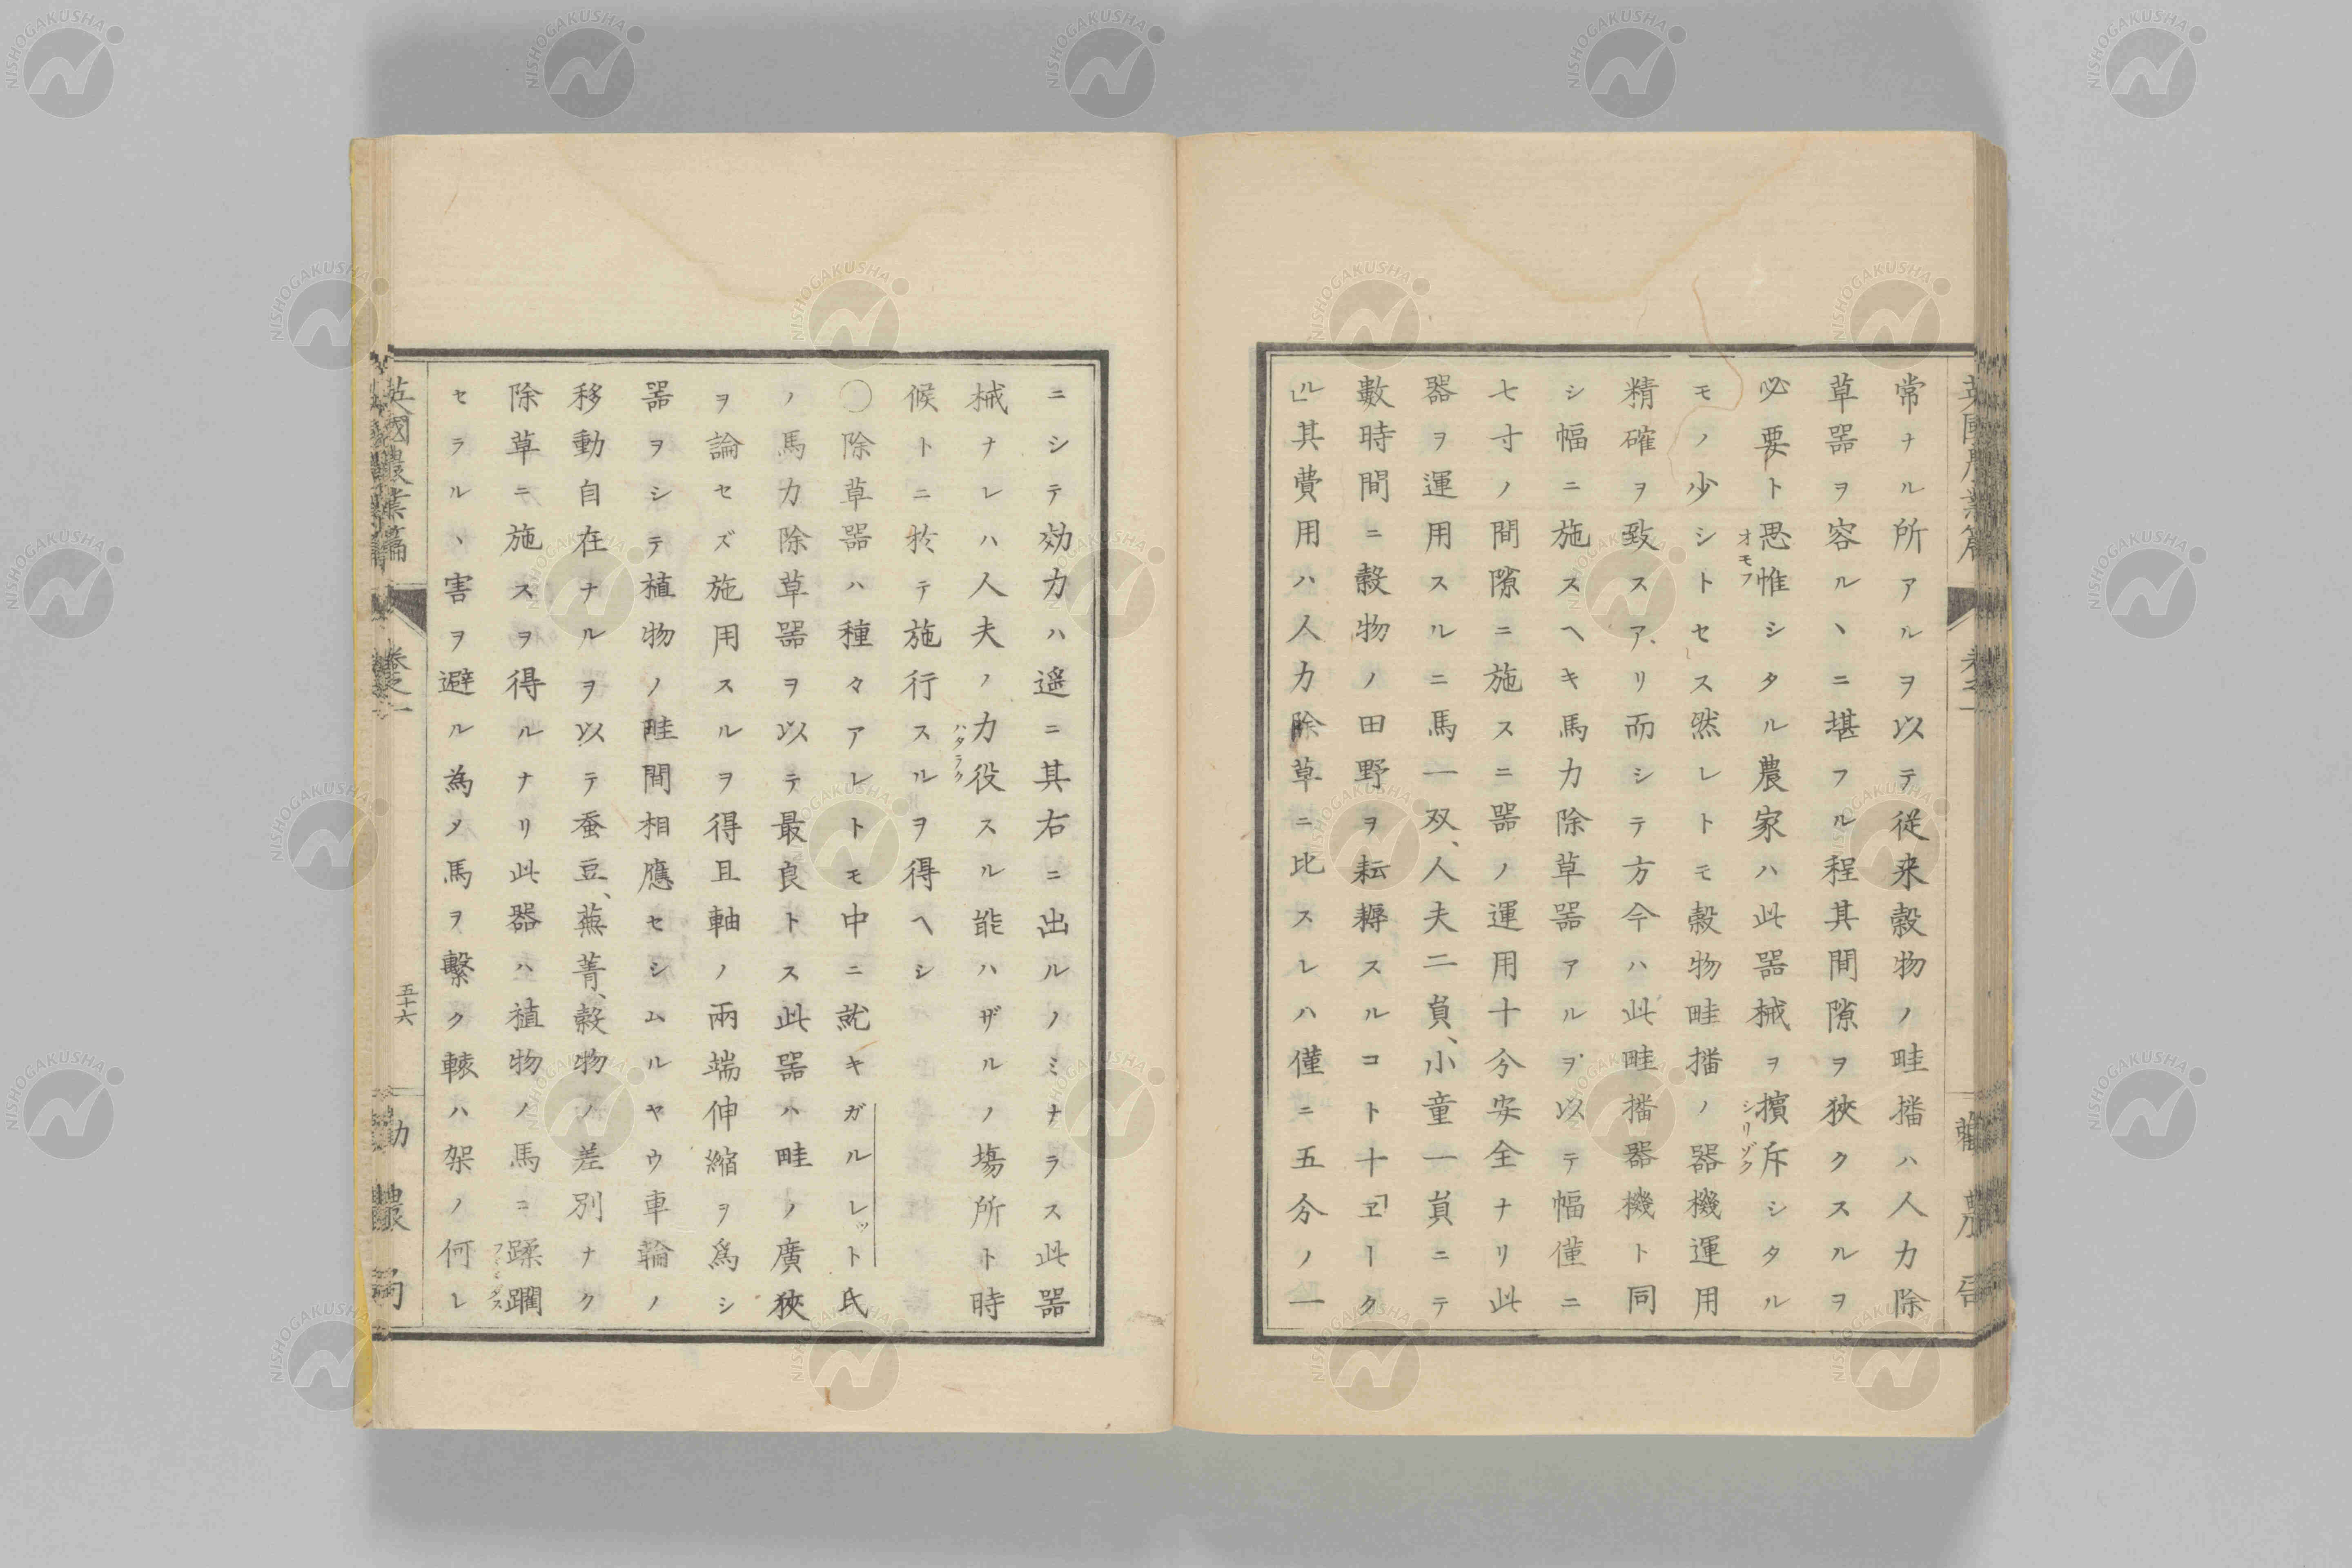 常ナル所アルヲ以テ従来穀物ノ畦播ハ人力除
草器ヲ容ルヽニ堪フル程其間隙ヲ狹クスルヲ
必要ト思惟シタル農家ハ此器械ヲ擯斥シタル
オモフ
シリゾク
モノ少シトセス然レトモ穀物畦播ノ器機運用
精確ヲ致スアリ而シテ方今ハ此畦播器機ト同
シ幅ニ施スヘキ馬力除草器アルヲ以テ幅僅ニ
七寸ノ間隙ニ施スニ器ノ運用十分安全ナリ此
器ヲ運用スルニ馬一双、人夫二員、小童一員ニテ
數時間ニ穀物ノ田野ヲ耘耨スルコト十「ヱーク
ル」其費用ハ人力除草ニ比スレハ僅ニ五分ノ一
ニシテ効力ハ遥ニ其右ニ出ルノミナラス此器
械ナレハ人夫ノ力役スル能ハザルノ塲所ト時
ハタラク
候トニ於テ施行スルヲ得ヘシ
〇除草器ハ種々アレトモ中ニ就キガルレット氏
ノ馬力除草器ヲ以テ最良トス此器ハ畦ノ廣狹
ヲ論セズ施用スルヲ得且軸ノ兩端伸縮ヲ爲シ
器ヲシテ植物ノ畦間相應セシムルヤウ車輪ノ
移動自在ナルヲ以テ蚕豆、蕪菁、穀物ノ差別ナク
除草ニ施スヲ得ルナリ此器ハ植物ノ馬ニ蹂躙
セラルヽ害ヲ避ル為メ馬ヲ繫ク轅ハ架ノ何レ
英國農業篇
五十六
勸農局